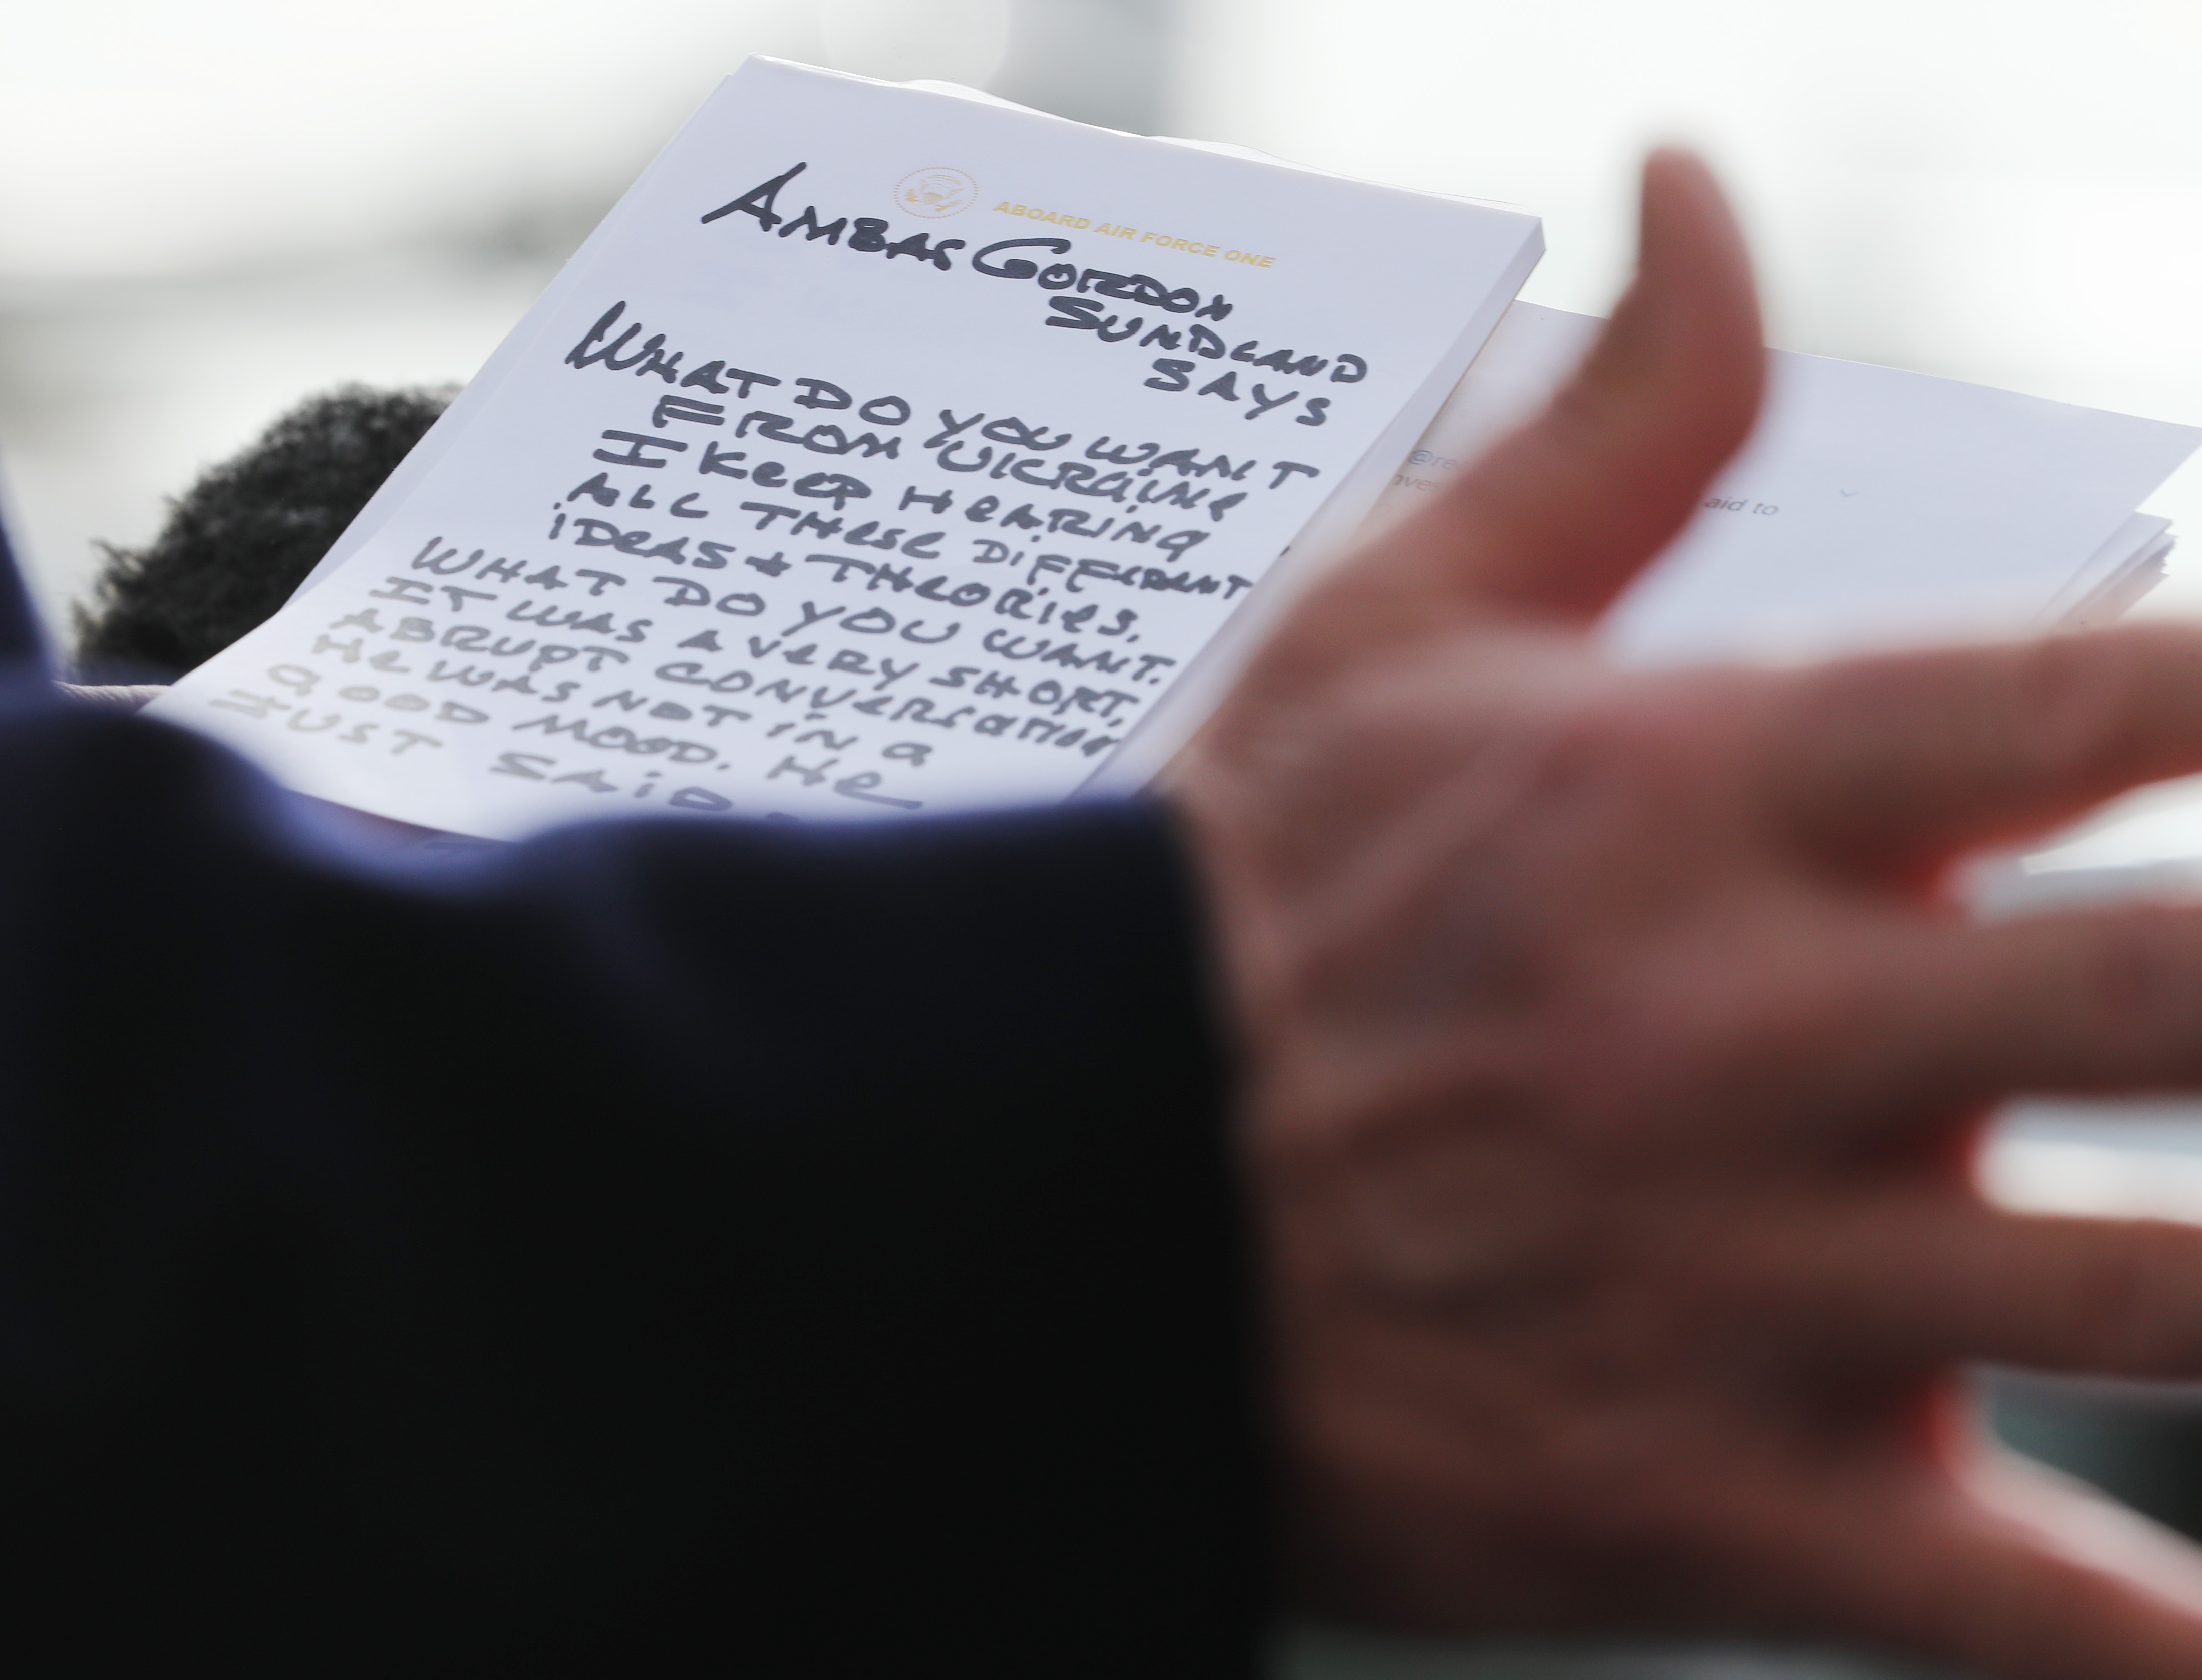 ABOARD AIR FORCE ONE
AMBAS GORDON
SUNDLAND
SAYS
WHAT DO YOU WANT
FROM UKRAINE
I KEEP HEARING
ALL THESE DIFFERENT
IDEAS & THEORIES.
WHAT DO YOU WANT.
IT WAS A VERY SHORT,
ABRUPT CONVERSATION
HE WAS NOT IN A
GOOD MOOD. HE
JUST SAID
aid to